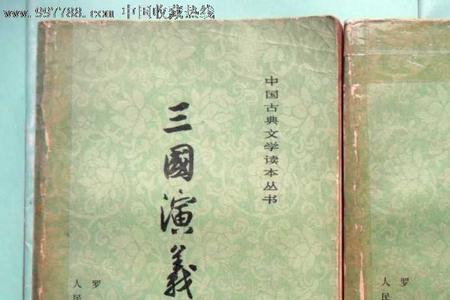 www.997788.com 中国收藏热线
中国古典文学读本丛书
三國演義
罗
人民
人民
罗